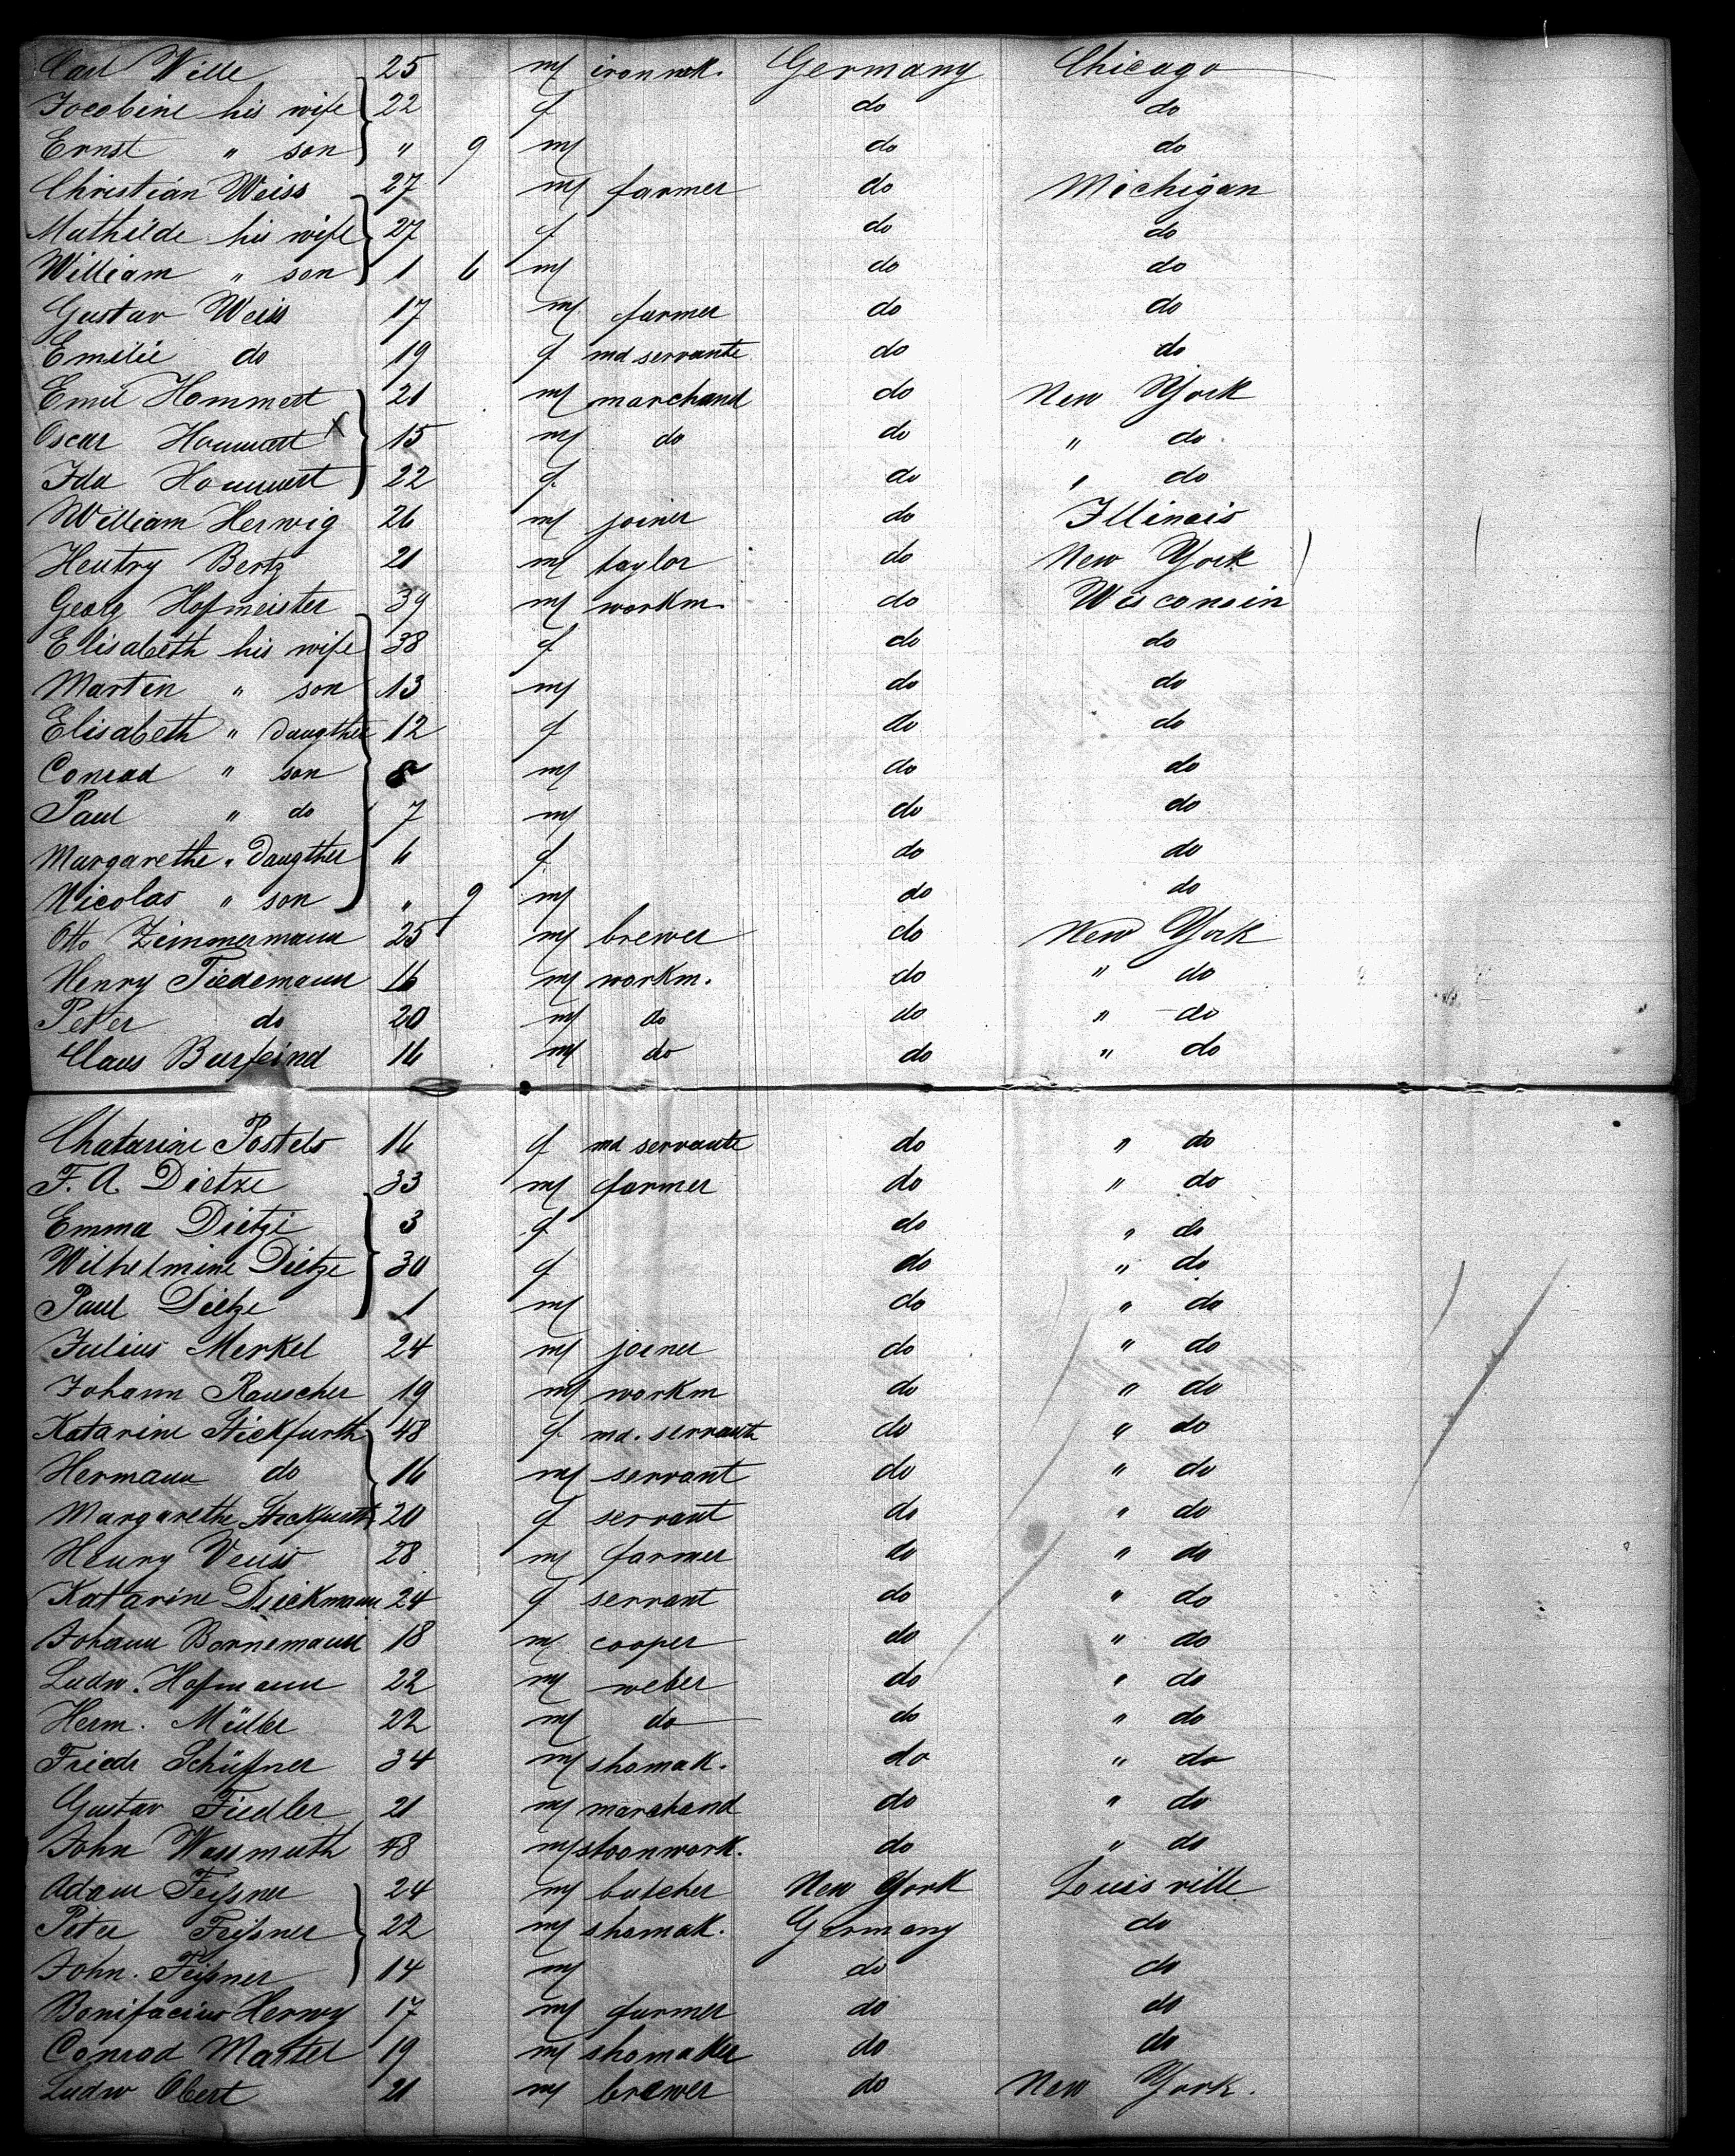 Carl Wille 25 m ironwk. Germany Chicago
Jocobine his wife 22 f do do
Ernst " son " 9 m do do
Christian Weiss 27 m farmer do Michigan
Mathilde his wife 27 f do do
William " son 1 6 m do do
Gustav Weiss 17 m farmer do do
Emilie do 19 f md servante do do
Emil Hommert 21 m marchand do New York
Oscar Hommert X 15 m do do " do
Ida Hommert 22 f do " do
William Herwig 26 m joiner do Illinois
Heutry Bertz 21 m taylor do New York
Georg Hofmeister 39 m workm. do Wisconsin
Elisabeth his wife 38 f do do
Martin " son 13 m do do
Elisabeth " daugther 12 f do do
Conrad " son 8 m do do
Paul " do 7 m do do
Margarethe " daugther 6 f do do
Nicolas " son " 9 m do do
Otto Zimmermann 25 m brewer do New York
Henry Tiedemann 16 m workm. do " do
Peter do 20 m do do " do
Claus Burfeind 16 m do do " do
Chatarine Postels 16 f md servante do " do
F. A. Dietze 33 m farmer do " do
Emma Dietze 3 f do " do
Wilhelmine Dietze 30 f do " do
Paul Dietze 1 m do " do
Julius Merkel 24 m joiner do " do
Johann Rauscher 19 m workm do " do
Katarine Stickfurth 48 f md. servante do " do
Hermann do 16 m servant do " do
Margarethe Stickfurth 20 f servant do " do
Henry Veuss 28 m farmer do " do
Katarine Dieckmann 24 f servant do " do
Johann Bornemann 18 m cooper do " do
Ludw. Hofmann 22 m weber do " do
Herm. Müller 22 m do do " do
Friedr Schüßner 34 m shomak. do " do
Gustav Fiedler 21 m marchand do " do
John Wassmuth 48 m stoonwork. do " do
Adam Feißner 24 m butcher New York Louisville
Peter Feißner 22 m shomak. Germany do
John. Feißner 14 m do do
Bonifacius Herwy 17 m farmer do do
Conrad Martel 19 m shomaker do do
Ludw Obert 21 m brewer do New York.